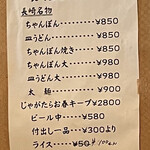 長崎名物
ちゃんぽん……¥850
皿うどん………¥850
ちゃんぽん焼き…¥850
ちゃんぽん大…¥980
皿うどん大……¥980
太麺………¥900
じゃがたらお春キープ¥2800
ビール中……¥580
付出し一品…¥300より
ライス……¥50